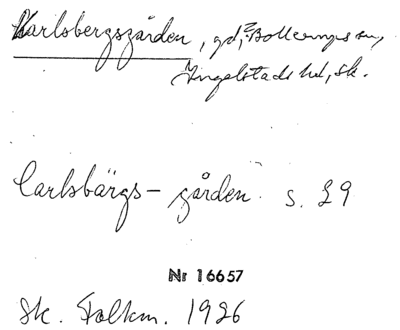 Karlsbergsgården, gd, ? Bollerups sn,
Ingelstads hd, sk.
Carlsbärgs-gården. s. 29
Nr 16657
Sk. Folkm. 1926